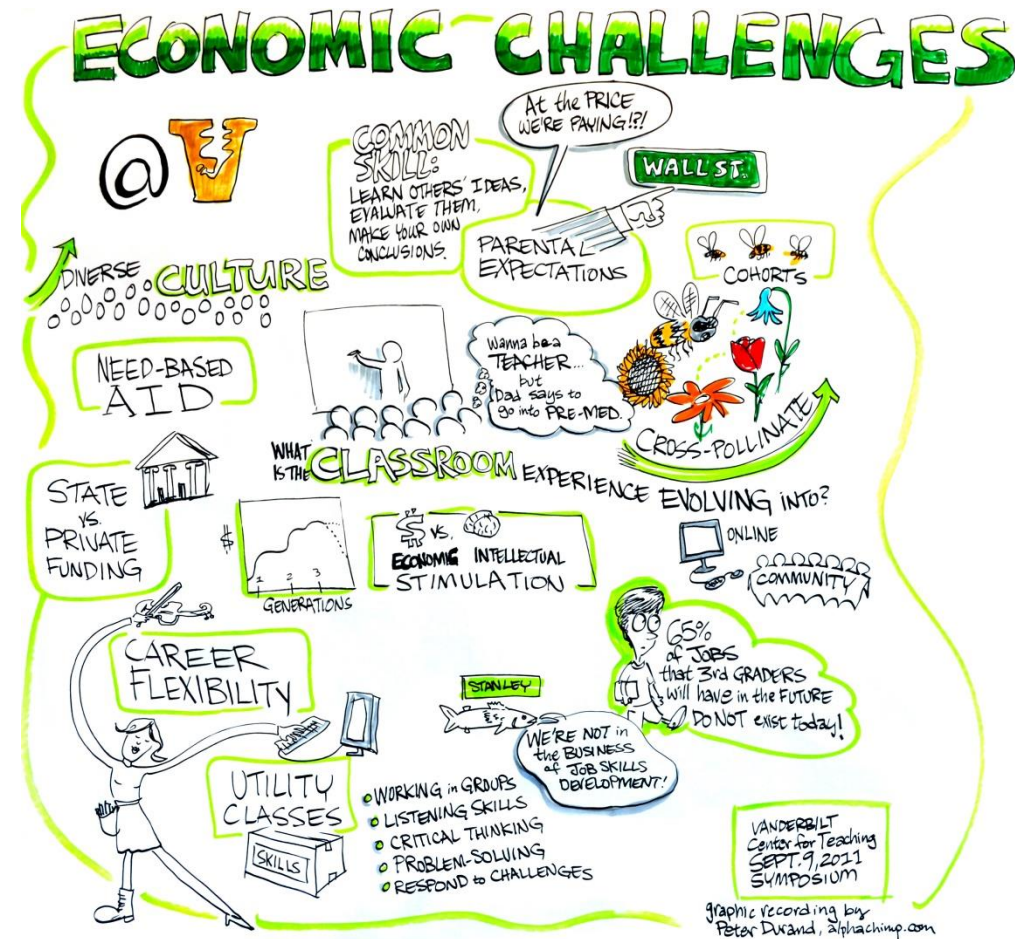 ECONOMIC CHALLENGES
@ V
COMMON
SKILL:
LEARN OTHERS' IDEAS,
EVALUATE THEM,
MAKE YOUR OWN
CONCLUSIONS.
At the PRICE
WE'RE PAYING!?!
WALL ST.
PARENTAL
EXPECTATIONS
COHORTS
DIVERSE CULTURE
NEED-BASED
AID
Wanna be a
TEACHER...
but
Dad says to
go into PRE-MED.
CROSS-POLLINATE
WHAT
IS THE CLASSROOM EXPERIENCE EVOLVING into?
STATE
vs.
PRIVATE
FUNDING
$
1 2 3
GENERATIONS
$ vs.
ECONOMIC INTELLECTUAL
STIMULATION
ONLINE
COMMUNITY
CAREER
FLEXIBILITY
65%
of JOBS
that 3rd GRADERS
will have in the FUTURE
DO NOT exist today!
STANLEY
WE'RE NOT in
the BUSINESS
of JOB SKILLS
DEVELOPMENT!
UTILITY
CLASSES
SKILLS
WORKING in GROUPS
LISTENING SKILLS
CRITICAL THINKING
PROBLEM-SOLVING
RESPOND to CHALLENGES
VANDERBILT
Center for Teaching
SEPT. 9, 2011
SYMPOSIUM
graphic recording by
Peter Durand, alphachimp.com